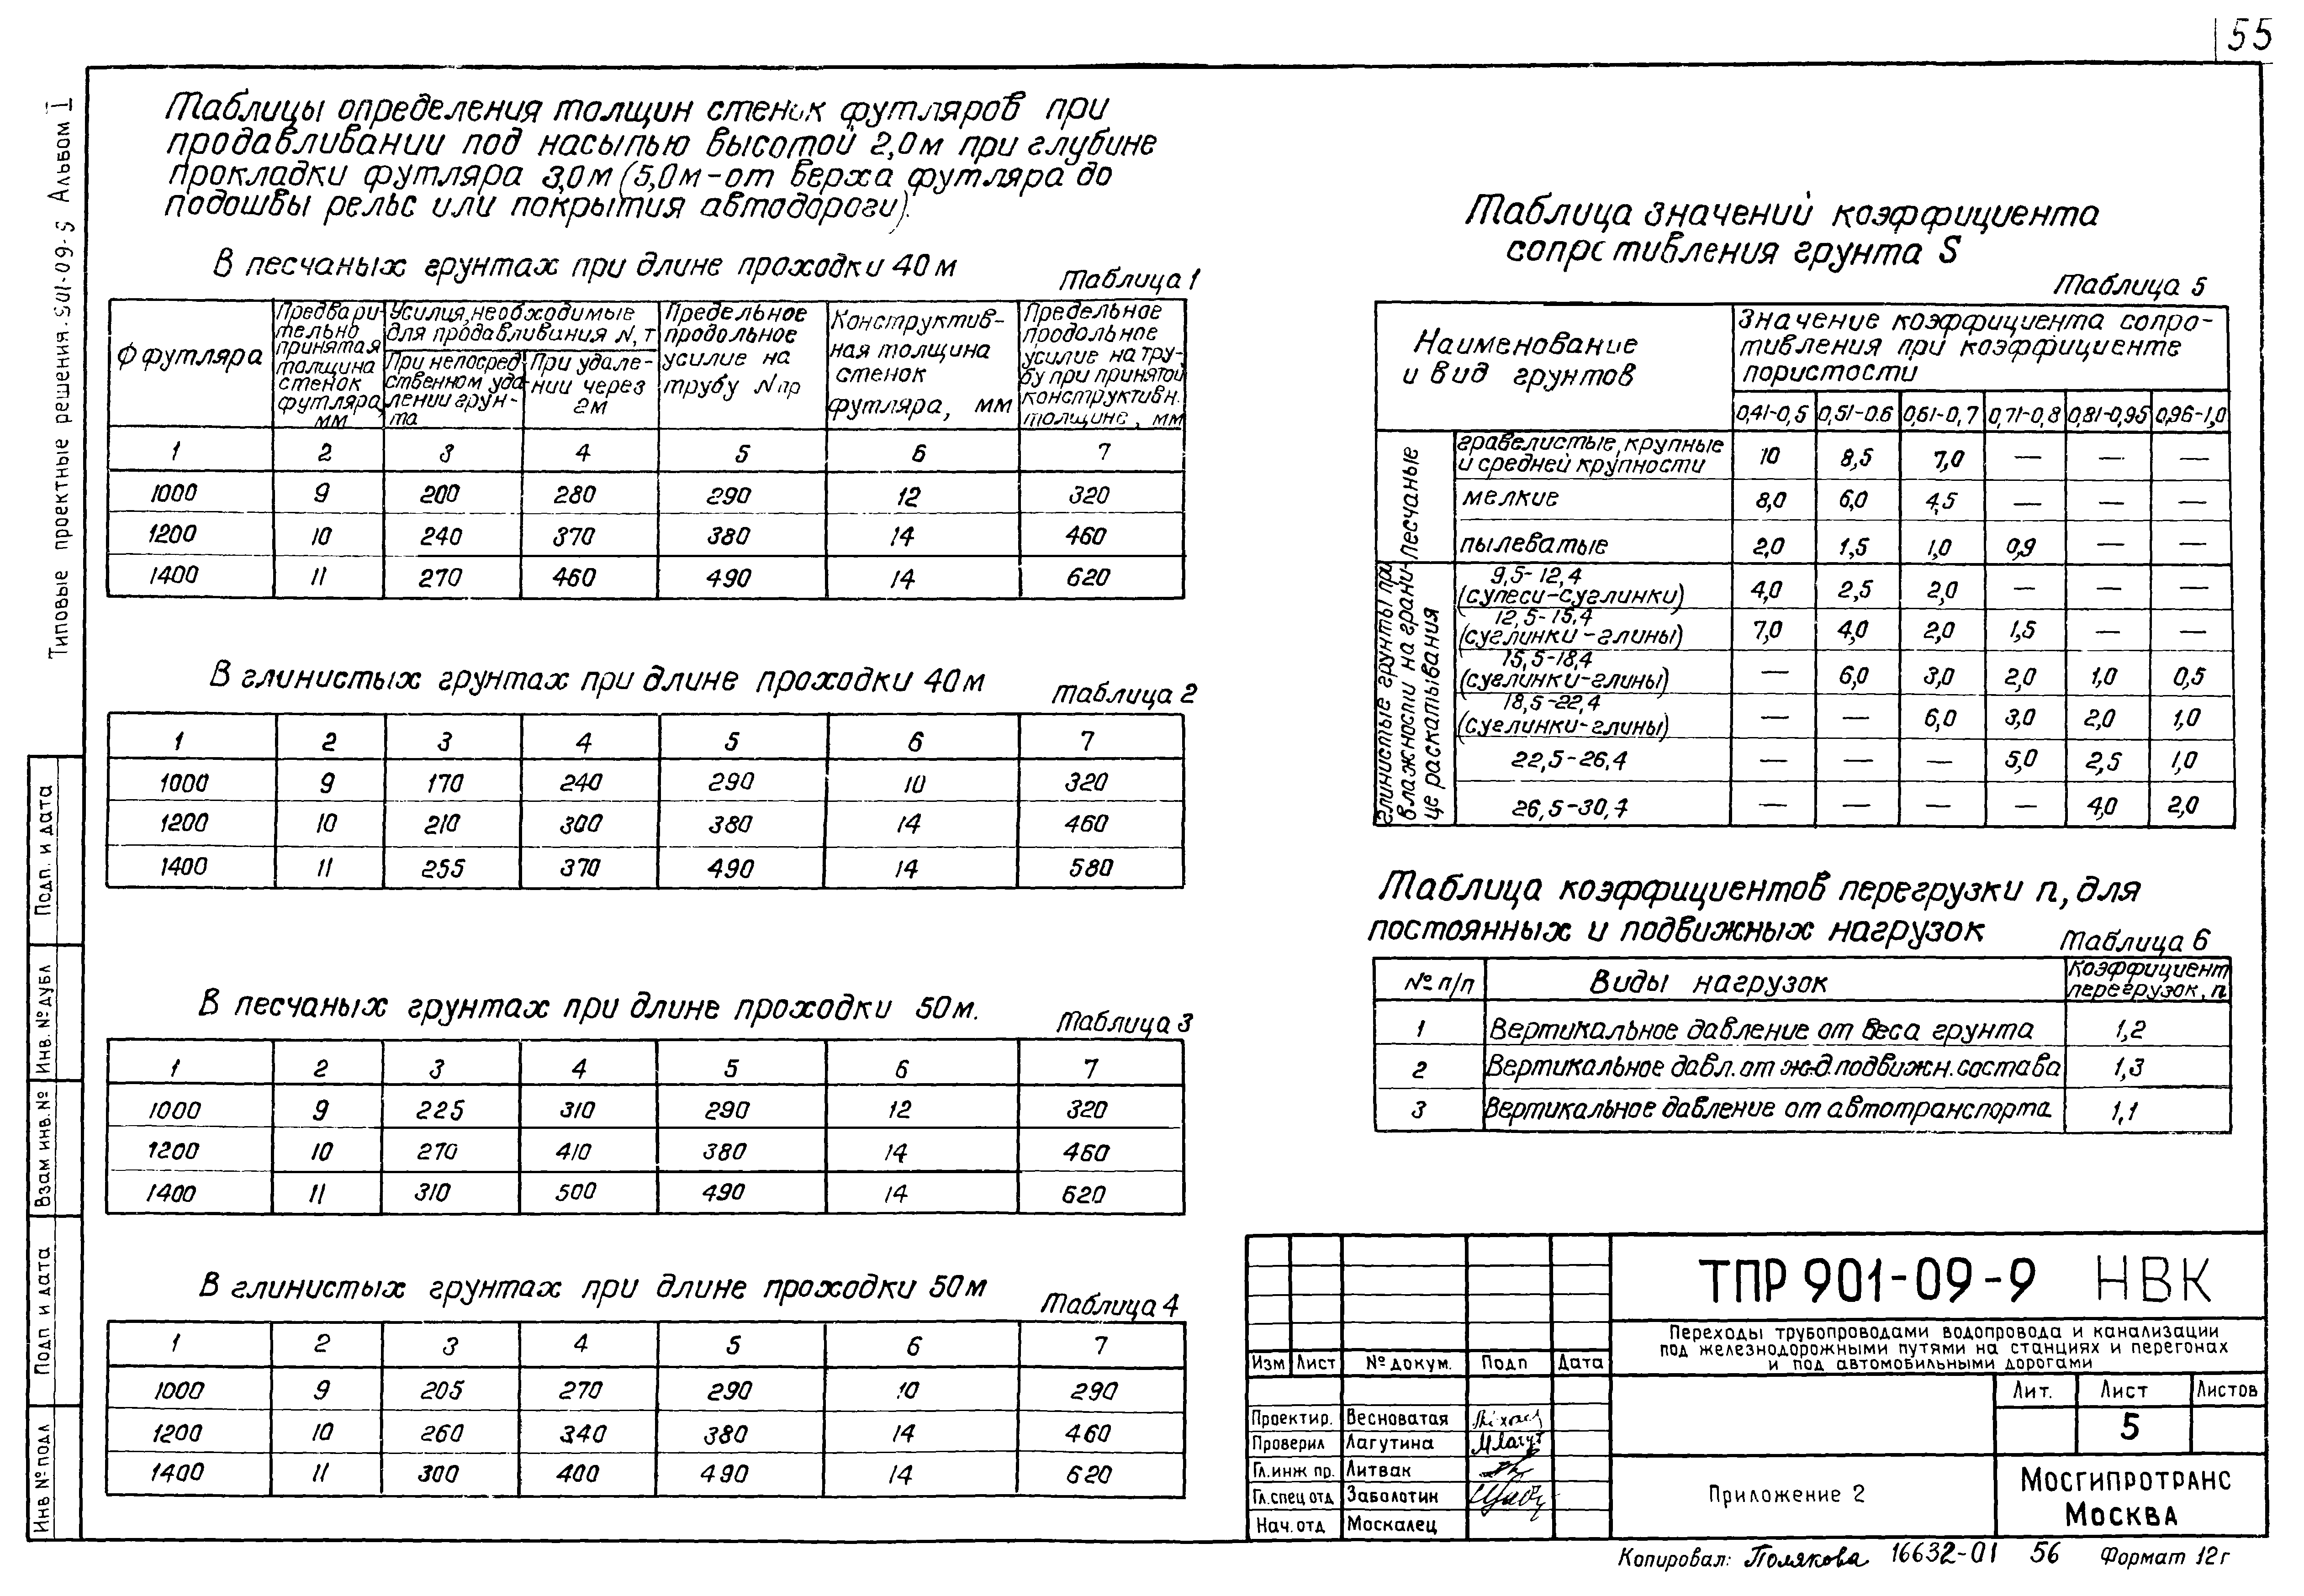 55
Типовые проектные решения. 901-09-9 Альбом I
Таблицы определения толщин стенок футляров при
продавливании под насыпью высотой 2,0м при глубине
прокладки футляра 3,0м (5,0м-от верха футляра до
подошвы рельс или покрытия автодороги).
В песчаных грунтах при длине проходки 40м
Таблица 1
Ф футляра
Предвари-
тельно
принятая
толщина
стенок
футляра,
мм
Усилия, необходимые
для продавливания N, т
При непосред
ственном уда-
лении грун-
та
При удале-
нии через
2м
Предельное
продольное
усилие на
трубу Nпр
Конструктив-
ная толщина
стенок
футляра, мм
Предельное
продольное
усилие на тру-
бу при принятой
конструктивн.
толщине, мм
1 2 3 4 5 6 7
1000 9 200 280 290 12 320
1200 10 240 370 380 14 460
1400 11 270 460 490 14 620
В глинистых грунтах при длине проходки 40м
Таблица 2
1 2 3 4 5 6 7
1000 9 170 240 290 10 320
1200 10 210 300 380 14 460
1400 11 255 370 490 14 580
В песчаных грунтах при длине проходки 50м.
Таблица 3
1 2 3 4 5 6 7
1000 9 225 310 290 12 320
1200 10 270 410 380 14 460
1400 11 310 500 490 14 620
В глинистых грунтах при длине проходки 50м
Таблица 4
1 2 3 4 5 6 7
1000 9 205 270 290 10 290
1200 10 260 340 380 14 460
1400 11 300 400 490 14 620
Таблица значений коэффициента
сопротивления грунта S
Таблица 5
Наименование
и вид грунтов
Значение коэффициента сопро-
тивления при коэффициенте
пористости
0,41-0,5 0,51-0.6 0,61-0,7 0,71-0,8 0,81-0,95 0,96-1,0
Песчаные
гравелистые, крупные
и средней крупности 10 8,5 7,0 — — —
мелкие 8,0 6,0 4,5 — — —
пылеватые 2,0 1,5 1,0 0,9 — —
глинистые грунты при
влажности на грани-
це раскатывания
9,5-12,4
(супеси-суглинки) 4,0 2,5 2,0 — — —
12,5-15,4
(суглинки-глины) 7,0 4,0 2,0 1,5 — —
15,5-18,4
(суглинки-глины) — 6,0 3,0 2,0 1,0 0,5
18,5-22,4
(суглинки-глины) — — 6,0 3,0 2,0 1,0
22,5-26,4 — — — 5,0 2,5 1,0
26,5-30,4 — — — — 4,0 2,0
Таблица коэффициентов перегрузки n, для
постоянных и подвижных нагрузок
Таблица 6
№ п/п Виды нагрузок
Коэффициент
перегрузок, n
1 Вертикальное давление от веса грунта 1,2
2 Вертикальное давл. от ж-д. подвижн. состава 1,3
3 Вертикальное давление от автотранспорта 1,1
ТПР 901-09-9 НВК
Переходы трубопроводами водопровода и канализации
под железнодорожными путями на станциях и перегонах
и под автомобильными дорогами
Изм Лист № докум. Подп Дата
Проектир. Весноватая
Проверил Лагутина
Гл.инж пр. Литвак
Гл.спец отд Заболотин
Нач. отд Москалец
Лит. Лист Листов
5
Приложение 2
Мосгипротранс
Москва
Копировал: Полякова 16632-01 56 Формат 12г
Подп. и дата
Инв. № дубл
Взам инв. №
Подп и дата
Инв № подл